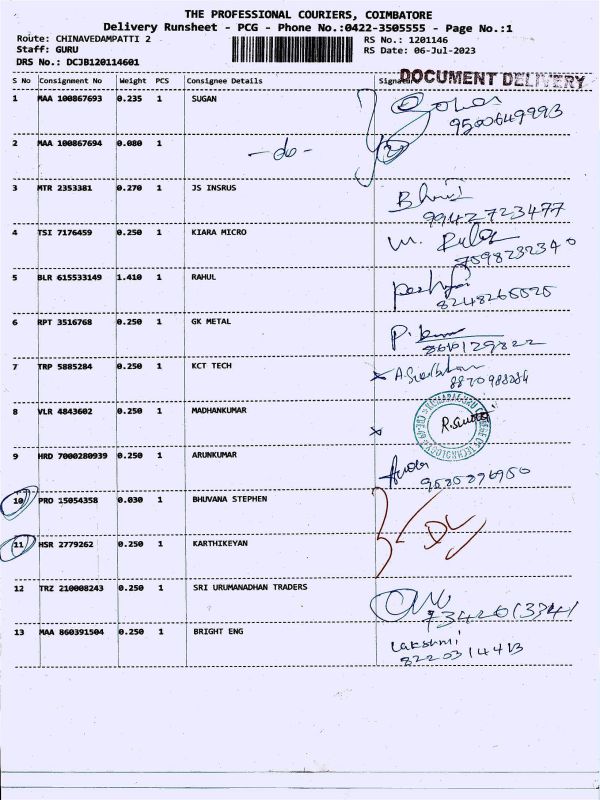 THE PROFESSIONAL COURIERS, COIMBATORE
Delivery Runsheet - PCG - Phone No.:0422-3505555 - Page No.:1
Route: CHINAVEDAMPATTI 2 RS No.: 1201146
Staff: GURU RS Date: 06-Jul-2023
DRS No.: DCJB120114601
S No Consignment No Weight PCS Consignee Details DOCUMENT DELIVERY
1 MAA 100867693 0.235 1 SUGAN
9500649993
2 MAA 100867694 0.080 1 -do-
3 MTR 2353381 0.270 1 JS INSRUS
99427 23477
4 TSI 7176459 0.250 1 KIARA MICRO
7598232340
5 BLR 615533149 1.410 1 RAHUL
8248265525
6 RPT 3516768 0.250 1 GK METAL
7 TRP 5885284 0.250 1 KCT TECH
8 VLR 4843602 0.250 1 MADHANKUMAR
9 HRD 7000280939 0.250 1 ARUNKUMAR
10 PRO 15054358 0.030 1 BHUVANA STEPHEN
DL
11 HSR 2779262 0.250 1 KARTHIKEYAN
12 TRZ 210008243 0.250 1 SRI URUMANADHAN TRADERS
7342613341
13 MAA 860391504 0.250 1 BRIGHT ENG Lakshmi
8220314413